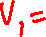 V₁=